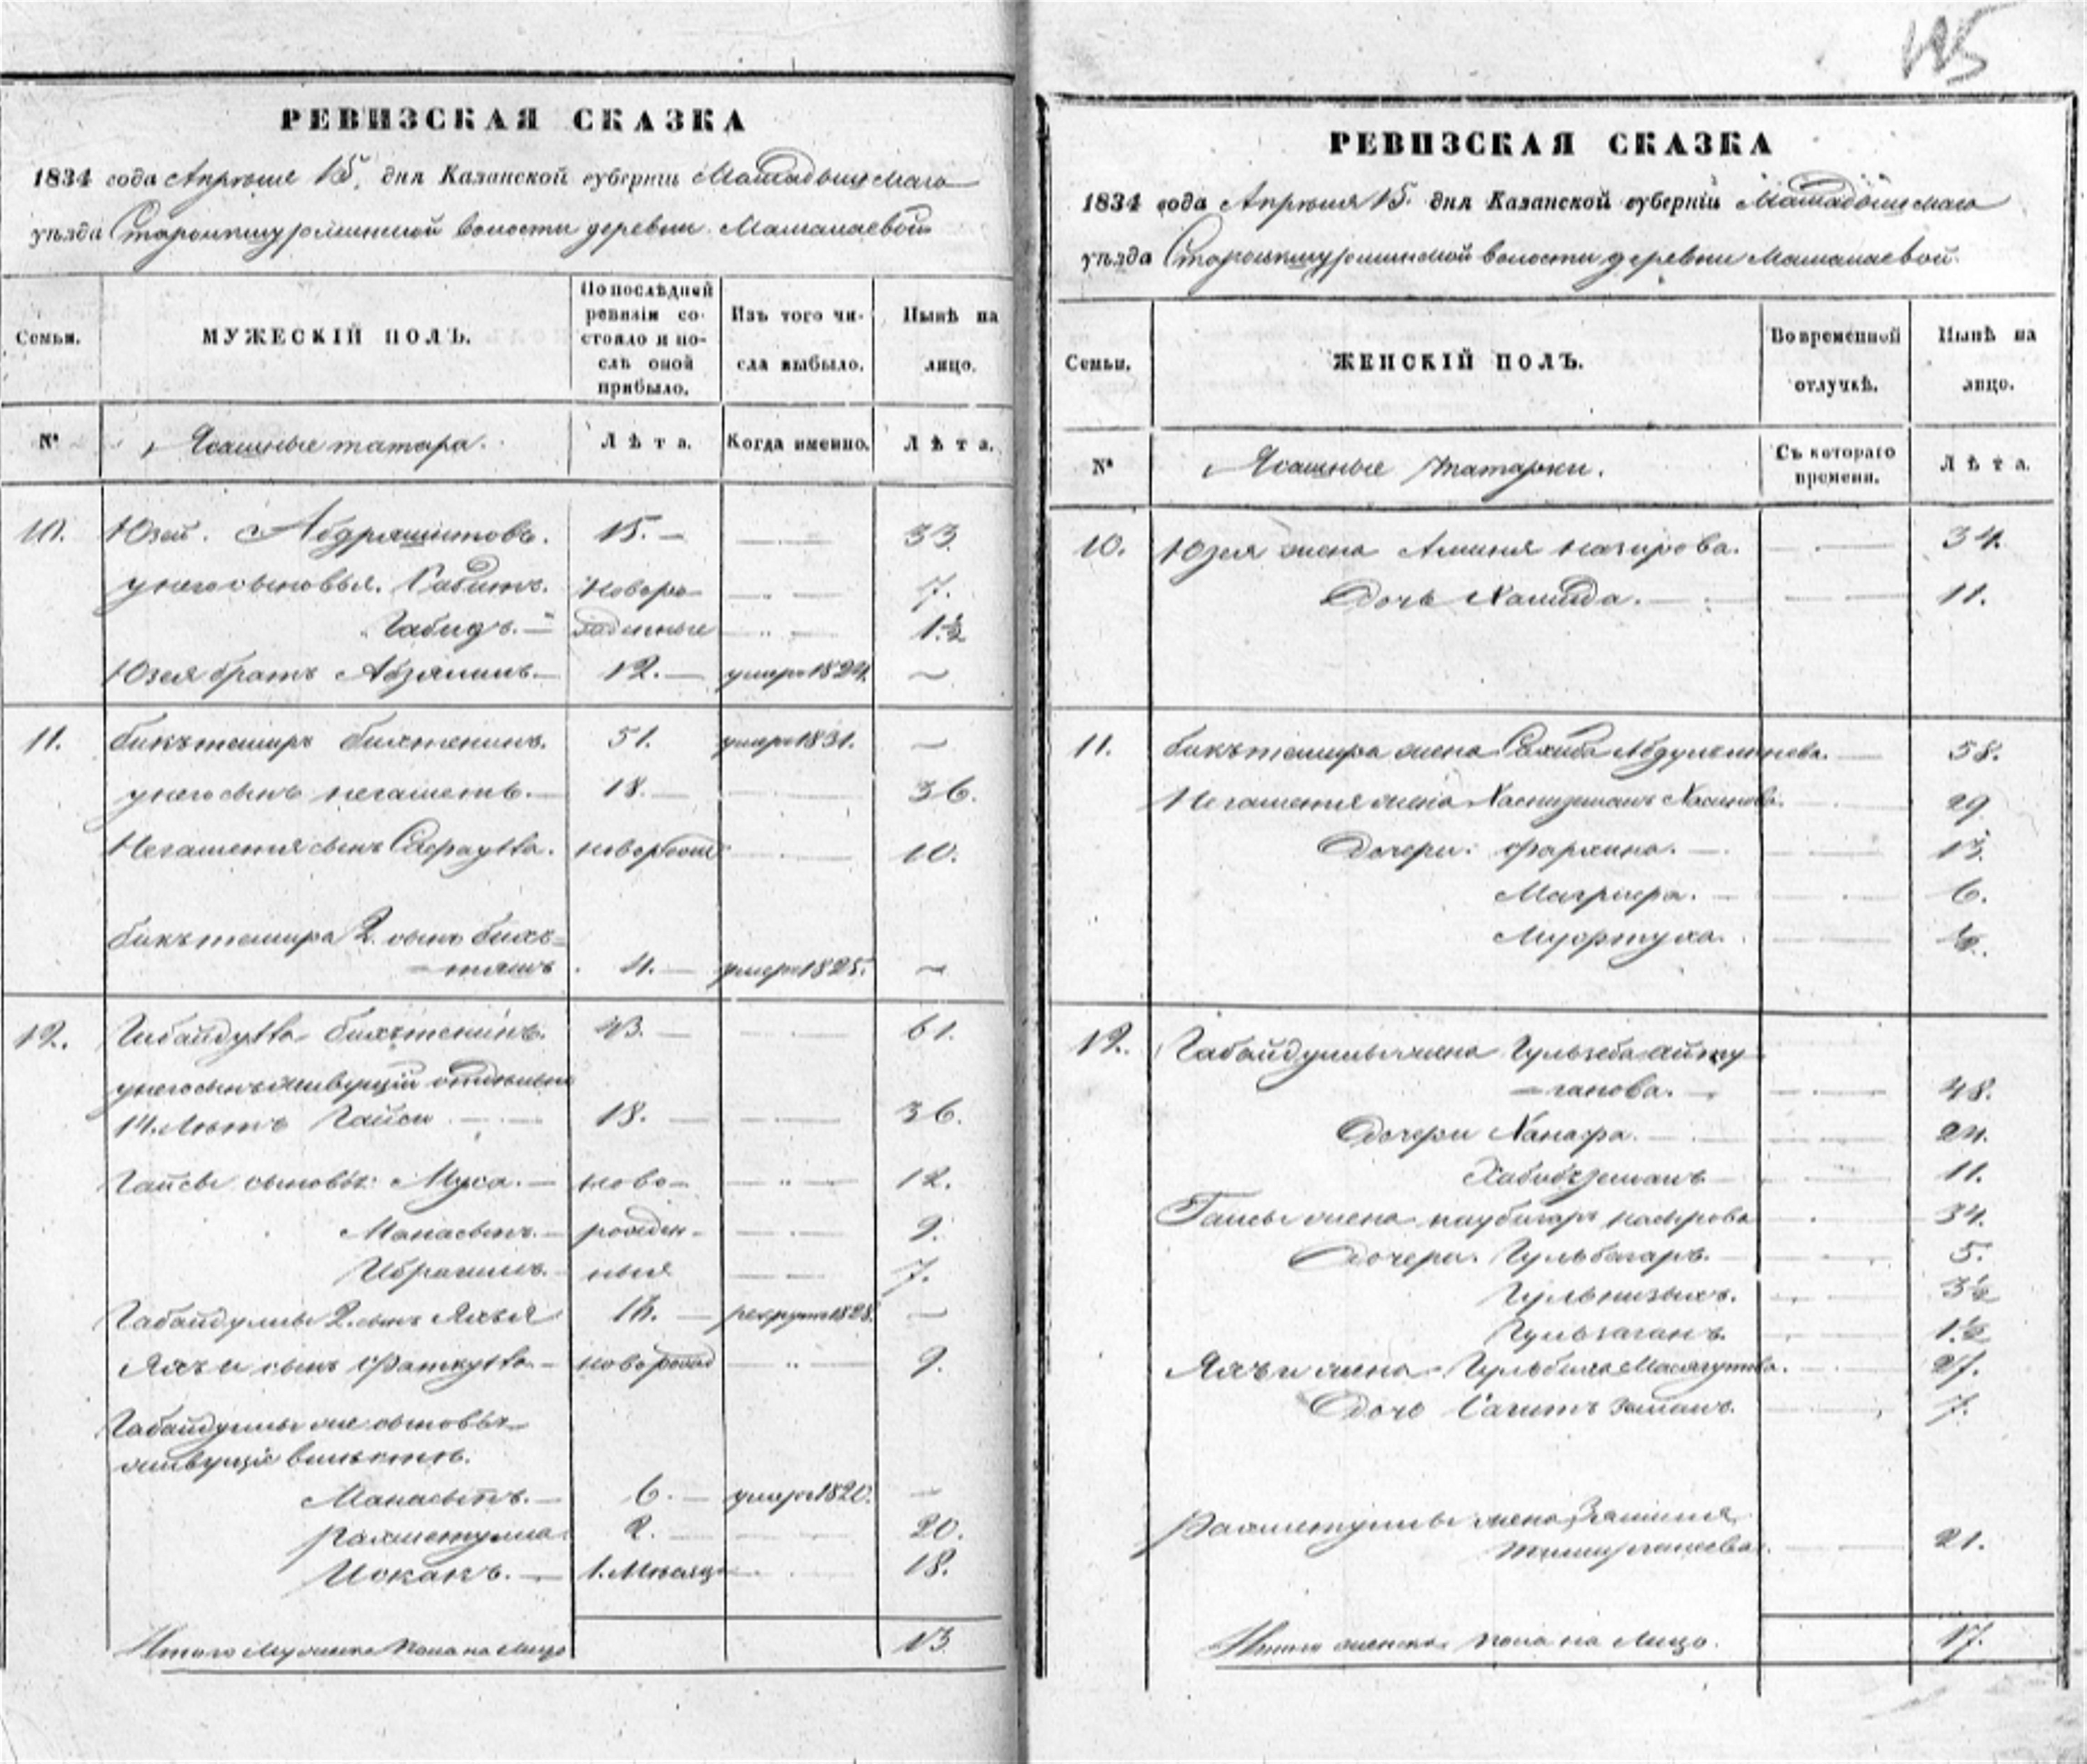 115
РЕВИЗСКАЯ СКАЗКА
1834 года Апреля 15. дня Казанской губернiи Мамадышскаго
уѣзда Староикшурминской волости деревни Мамалаевой
Семьи. МУЖЕСКIЙ ПОЛЪ. По послѣдней ревизiи состояло и послѣ оной прибыло. Изъ того числа выбыло. Нынѣ на лицо.
№ Ясашные татара. Лѣта. Когда именно. Лѣта.
10. Юзей. Абдряшитовъ. 15. 33.
у него сыновья. Сабитъ. Новоро 7.
Габидъ. жденные 1½
Юзея братъ Абзялилъ 12. умеръ 1824.
11. бикътемиръ бихтенинъ. 51. умеръ 1831.
у него сынъ негаметь. 18. 36.
Негаметя сынъ Сефаулла. новорожд 10.
бикътемира 2. сынъ бикъ=
=тяшъ 4. умеръ 1825.
12. Гибайдулла бихтенинъ. 43. 61.
у него сынъ живущiй отдельно
14. Летъ Гайси 18. 36.
Гайсы сыновья: Муса. ново- 12.
Манасыпъ. рожден- 9.
Ибрагимъ. ныя 7.
Габайдуллы 2. сынъ Яхья 16. рекрутъ 1828.
Яхъи сынъ Фаткулла новорожд 9.
Габайдуллы же сыновья
живущiе вместе.
Манасыпъ. 6. умеръ 1820.
рахметулла. 2. 20.
Исхакъ. 1. Месяцъ 18.
Итого Мужеска пола на Лицо 13
РЕВИЗСКАЯ СКАЗКА
1834 года Апреля 15. дня Казанской губернiи Мамадышскаго
уѣзда Староикшурминской волости деревни Мамалаевой.
Семьи. ЖЕНСКIЙ ПОЛЪ. Во временной отлучкѣ. Нынѣ на лицо.
№ Ясашные татарки. Съ котораго времени. Лѣта.
10. Юзея жена Аминя назирова. 34.
Дочь Хамида. 11.
11. бикътемира жена Сахиба 58.
Негаметя жена 29
Дочери: фархина. 13.
6.
½.
12. Габайдуллы жена Гульзеба айту
=ганова. 48.
Дочери Ханафа. 24.
Хабибъземанъ 11.
Гайсы жена наубигаръ насырова 34.
Дочери. Гульбагаръ. 5.
3½
1½
Яхъи жена Гульбика Масягутова. 27.
Дочь Сагитъ заманъ. 7.
Рахметуллы жена Зямиля
21.
Итого женска пола на Лицо. 17.